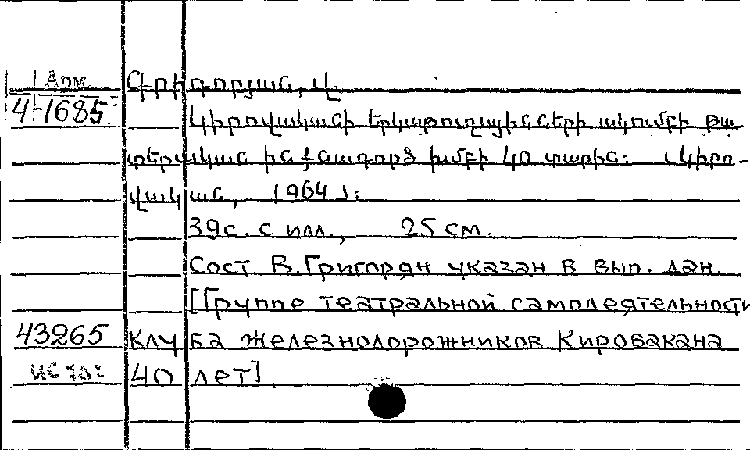 Арм. Գրիգորյան, Վ.
4-1685
Կիրովականի երկաթուղայինների ակումբի թա
տերական ինքնագործ խմբի 40 տարին: Կիրո-
վական, [1964]:
39 с. с илл., 25 см.
Сост В. Григорян указан в вып. дан.
[Группе театральной самодеятельности
43265 клуба железнодорожников Кировакана
40 лет]